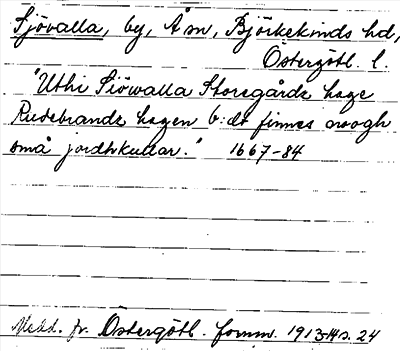 Sjövalla, by, Å sn, Björkekinds hd,
Östergötl. l.
"Uthi Siöwalla Storegårds hage
Rudebrands hagen b:dt finnes
små jordhkullar." 1667-84
Medd. fr. Östergötl. fornm. 1913-14 s. 24